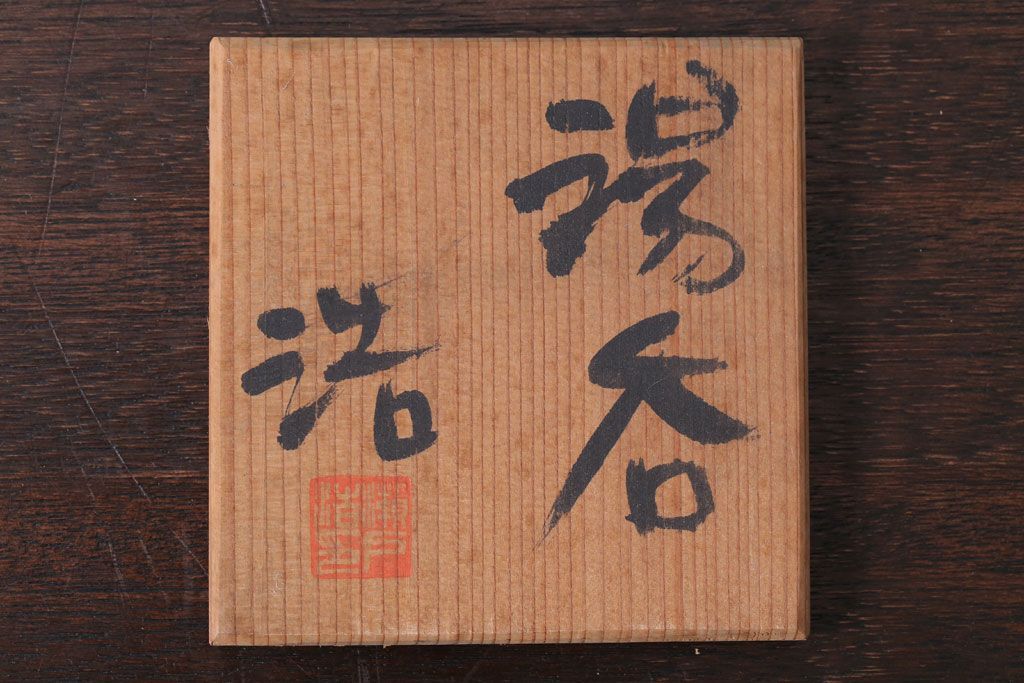 湯呑
浩